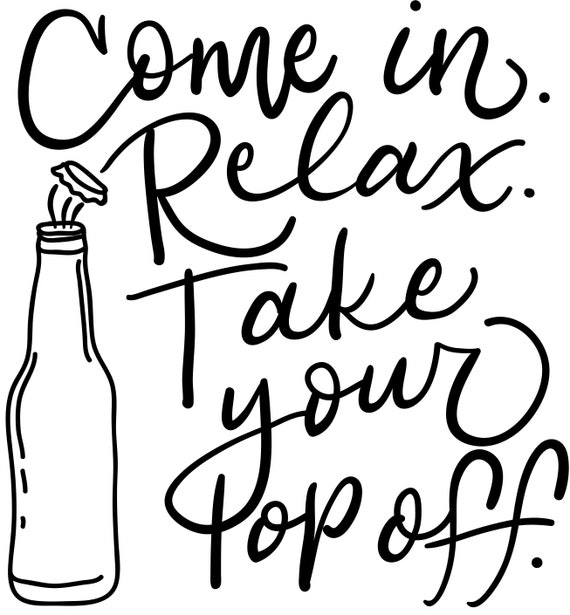 Come in.
Relax.
Take
your
top off.